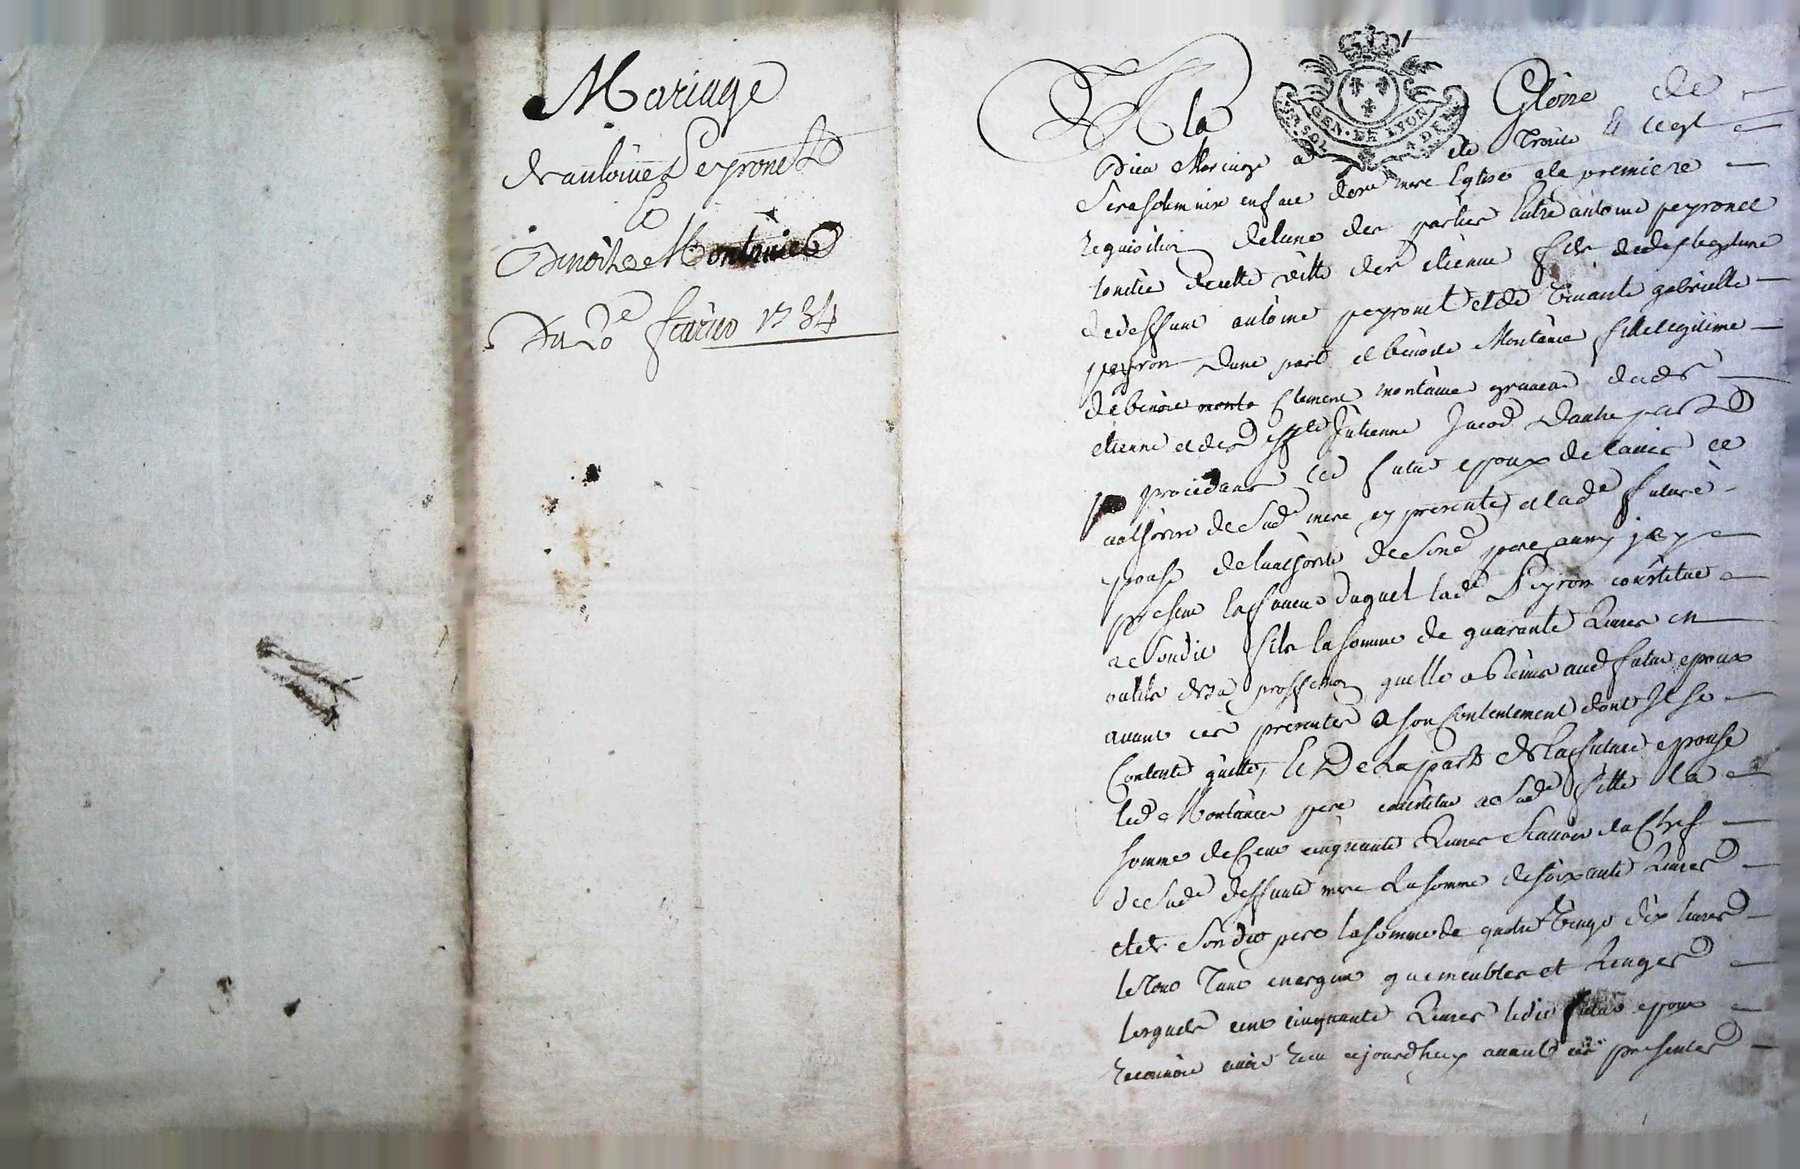 Mariage
de antoine Peyronet
Et
Benoite Montanier
Du 20e fevrier 1734
A la Gloire de
GEN. DE LYON
Dieu Mariage a de Traité et
Sera solemnizé en face de ntre mere Eglise a la premiere
requisition de lune des parties Entre antoine peyronet
de cette ville de st etienne fils
de deffunt antoine peyronet et de vivante gabrielle
peyron dune part et benoite Montanier fille legitime
de benoit clement montanier graveur dudt st
etienne et de Julienne Jacod dautre part
procedant led futur epoux de lavis et
authorité de sad mere cy presente et lad future
epouse de lauthorité de sond pere aussy icy
present En faveur duquel lade Peyron constitue
a son dit fils la somme de quarante Livres en
outils de sa proffession quelle a remis aud futur epoux
avant ces presentes a son contentement dont Il se
contente quitte, Et De la part de la future epouse
led Montanier pere constitue a sade fille la
somme de Cent cinquante Livres scavoir du Chef
de sade deffunte mere La somme de soixante Livres
et de son dit pere la somme de quatre vingt dix livres
le tout tant en argent que meubles et Linges
lesquels cent cinquante Livres ledit futur epoux
reconnoit avoir receu aujourdhuy avant ces presentes